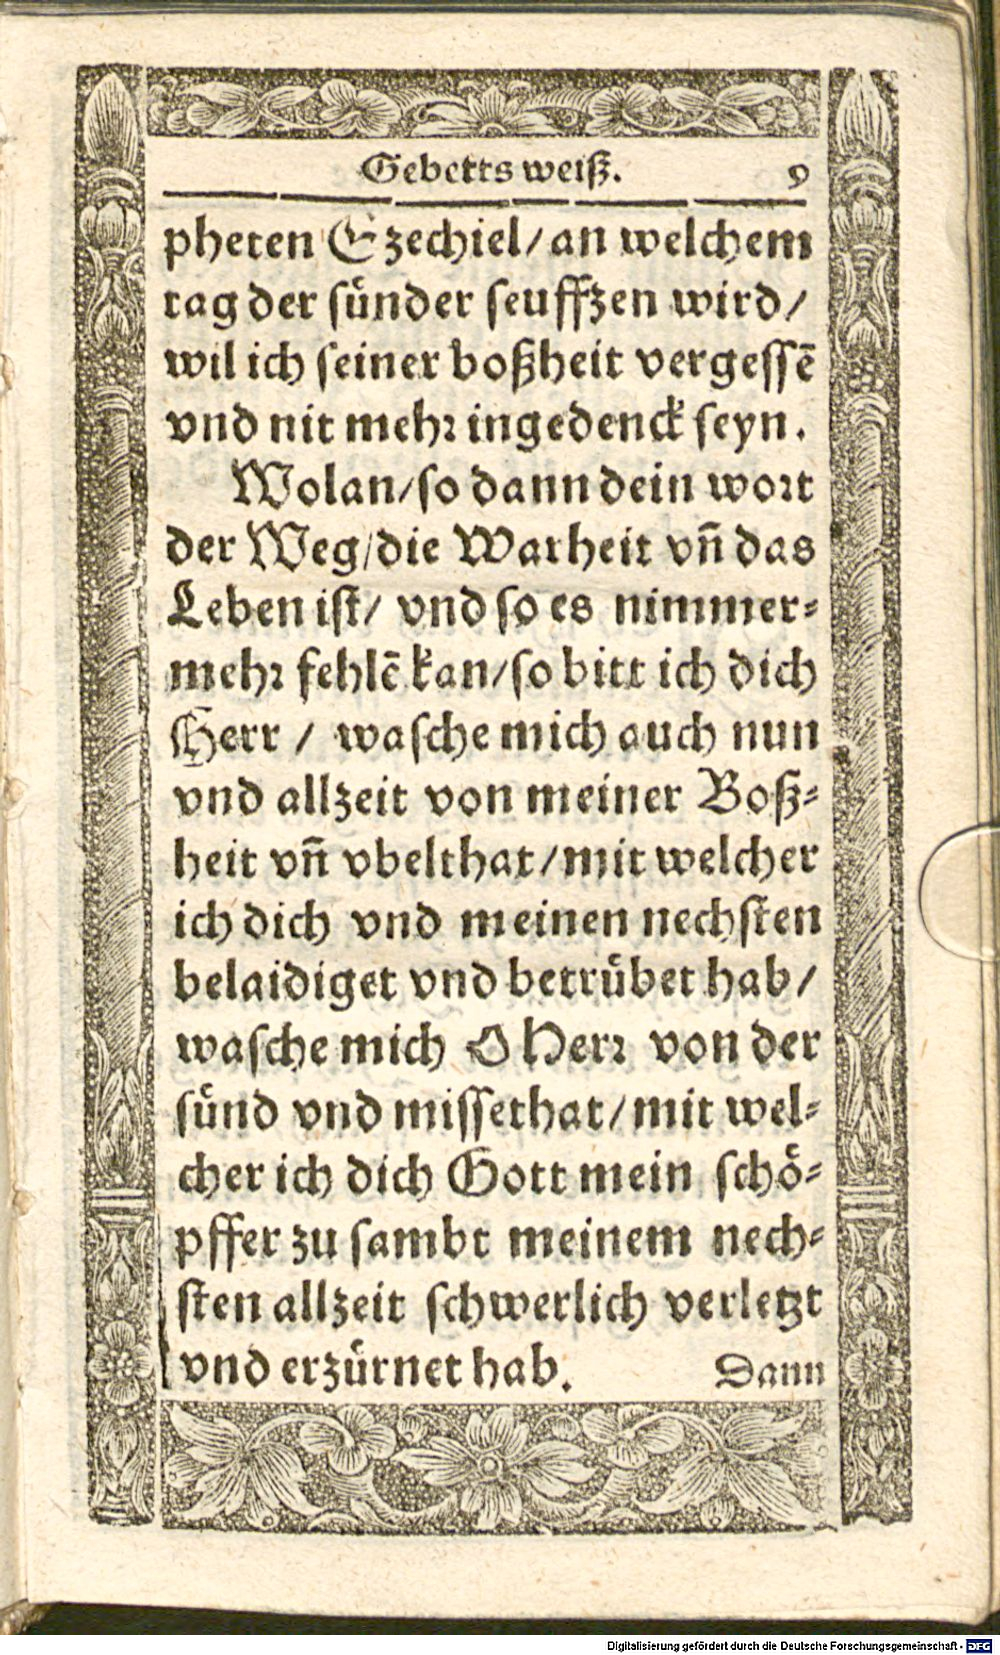 Gebetts weiß. 9
pheten Ezechiel/ an welchem
tag der sünder seuffzen wird/
wil ich seiner boßheit vergessē
vnd nit mehr ingedenck seyn.
Wolan/ so dann dein wort
der Weg/ die Warheit vñ das
Leben ist/ vnd so es nimmer-
mehr fehlē kan/ so bitt ich dich
Herr / wasche mich auch nun
vnd allzeit von meiner Boß-
heit vñ vbelthat/ mit welcher
ich dich vnd meinen nechsten
belaidiget vnd betrübet hab/
wasche mich O Herr von der
sünd vnd missethat/ mit wel-
cher ich dich Gott mein schö-
pffer zu sambt meinem nech-
sten allzeit schwerlich verletzt
vnd erzürnet hab. Dann
Digitalisierung gefördert durch die Deutsche Forschungsgemeinschaft - DFG